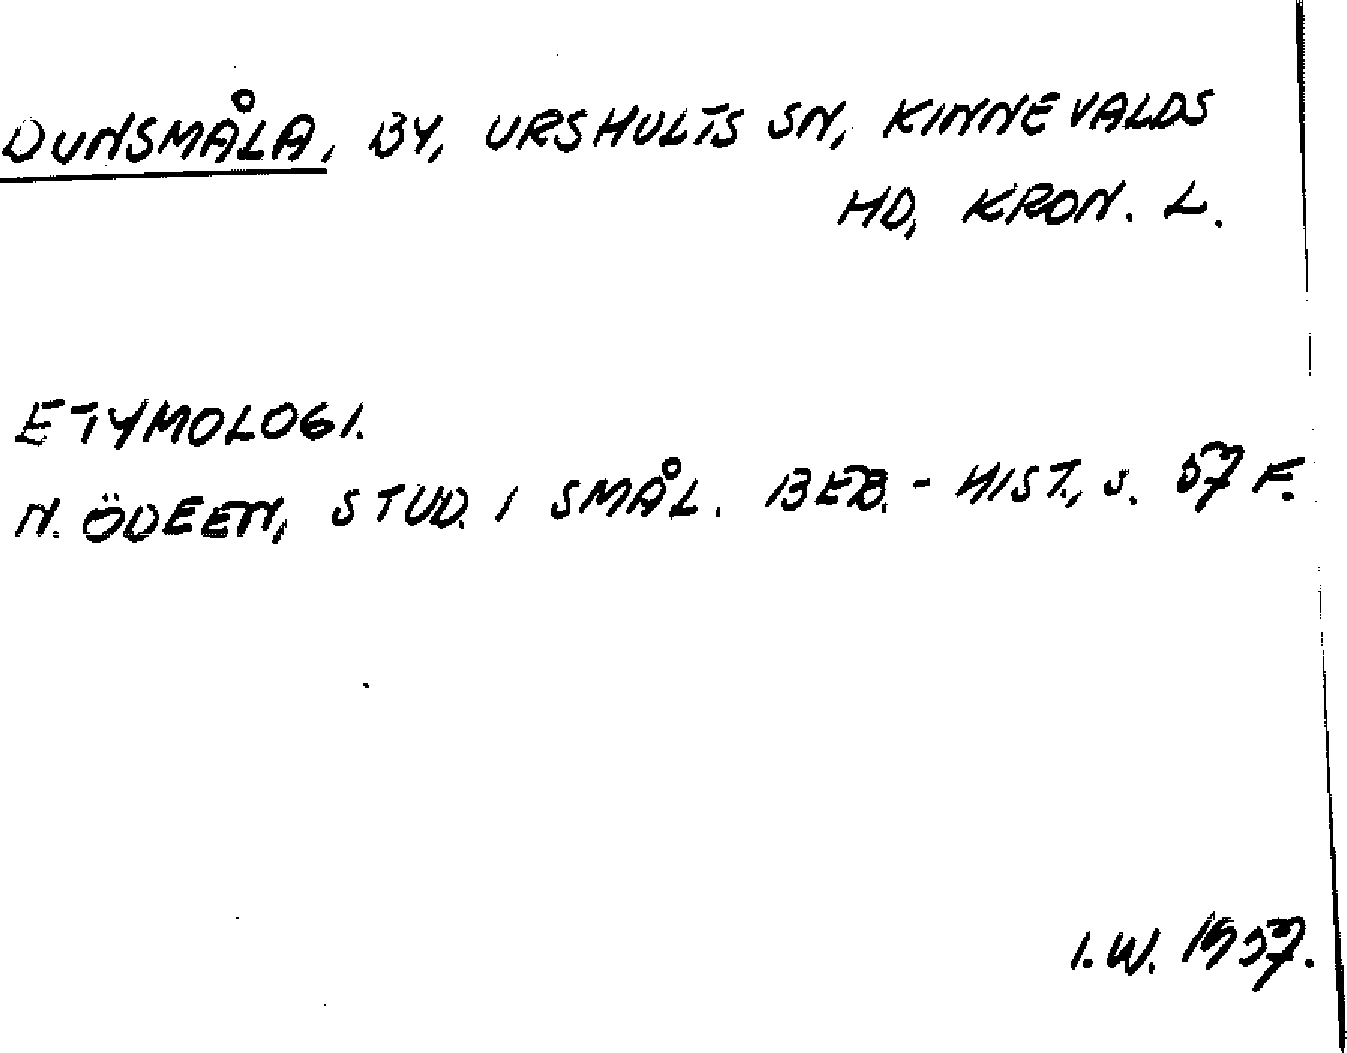 DUNSMÅLA, BY, URSHULTS SN, KINNEVALDS
HD, KRON. L.
ETYMOLOGI.
N. ÖDEEN, STUD. I SMÅL. BEB.-HIST., S. 57 F.
I.W. 1957.